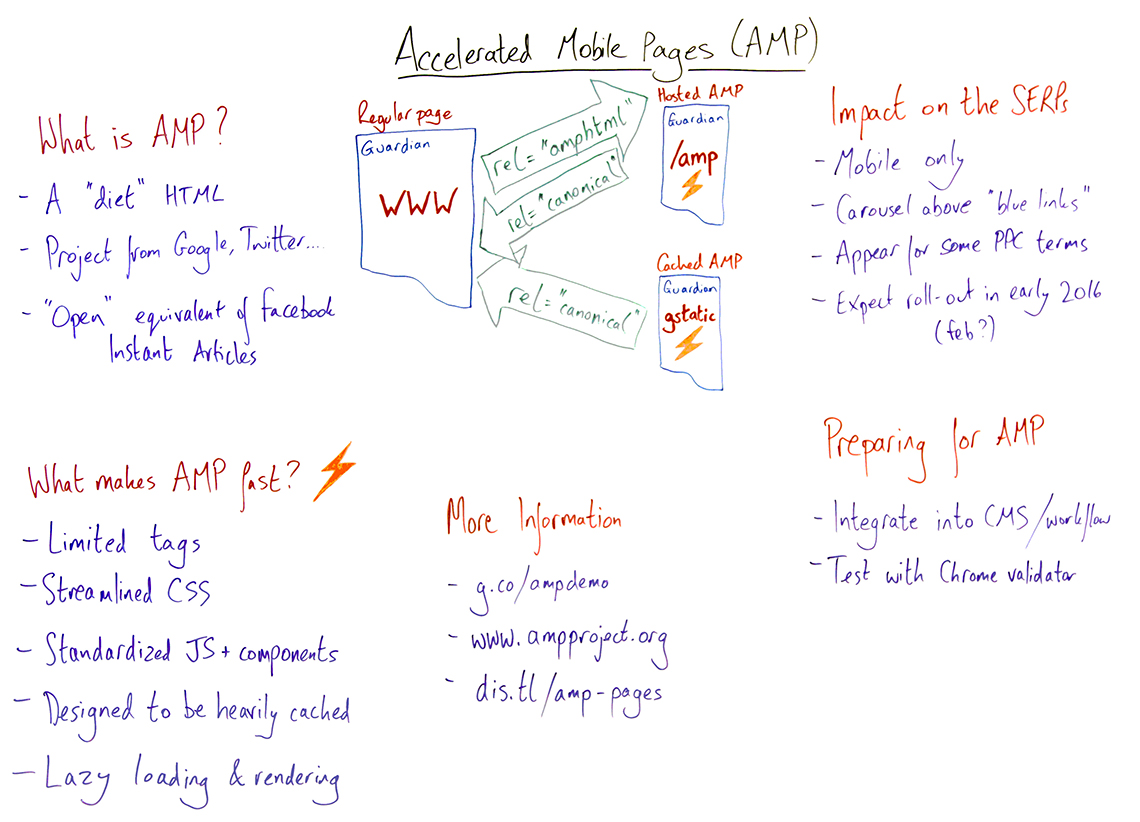 Accelerated Mobile Pages (AMP)
What is AMP?
- A "diet" HTML
- Project from Google, Twitter....
- "Open" equivalent of facebook
Instant Articles
Regular page
Guardian
WWW
rel="amphtml"
rel="canonical"
rel="canonical"
Hosted AMP
Guardian
/amp
Cached AMP
Guardian
gstatic
Impact on the SERPs
- Mobile only
- Carousel above "blue links"
- Appear for some PPC terms
- Expect roll-out in early 2016
(feb?)
What makes AMP fast?
- Limited tags
- Streamlined CSS
- Standardized JS + components
- Designed to be heavily cached
- Lazy loading & rendering
More Information
- g.co/ampdemo
- www.ampproject.org
- dis.tl/amp-pages
Preparing for AMP
- Integrate into CMS/workflow
- Test with Chrome validator